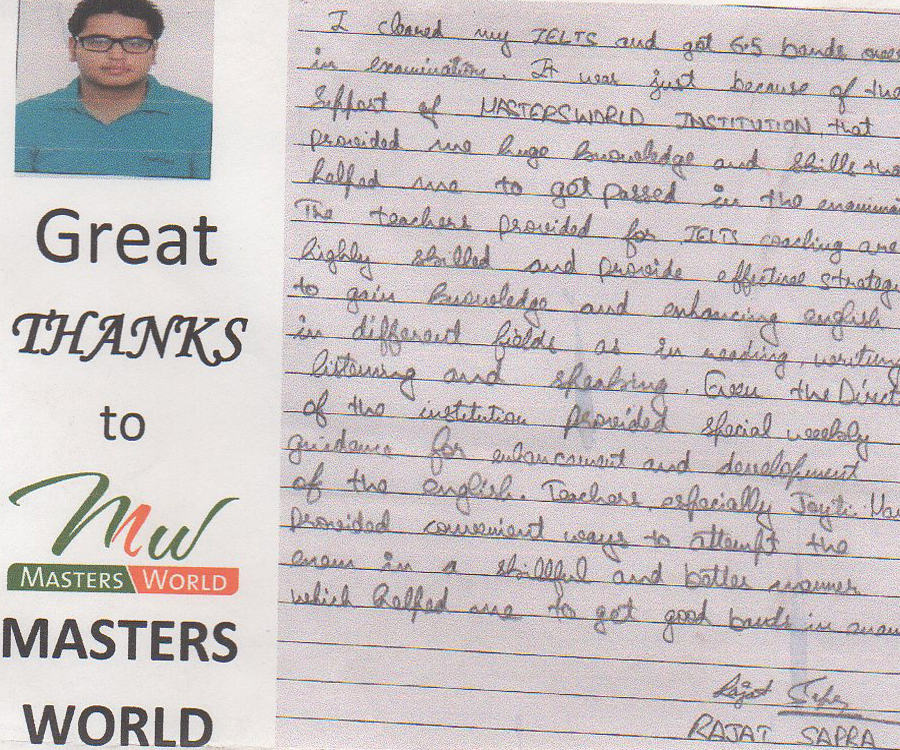 Great
THANKS
to
MW
MASTERS WORLD
MASTERS
WORLD
I cleared my IELTS and got 6.5 bands
in examination. It was just because of the
Support of MASTERSWORLD INSTITUTION, that
provided me huge knowledge and skills
helped me to got passed in the
The teachers provided for IELTS coaching are
highly skilled and provide effective
to gain knowledge and enhancing english
in different fields as in reading, writing
listening and speaking. Even the
of the institution provided special weekly
guidance for enhancement and development
of the english. Teachers, especially
Provided convenient ways to attempt the
exam in a skillful and better manner
which helped me to get good bands in
Rajat
RAJAT SAPRA